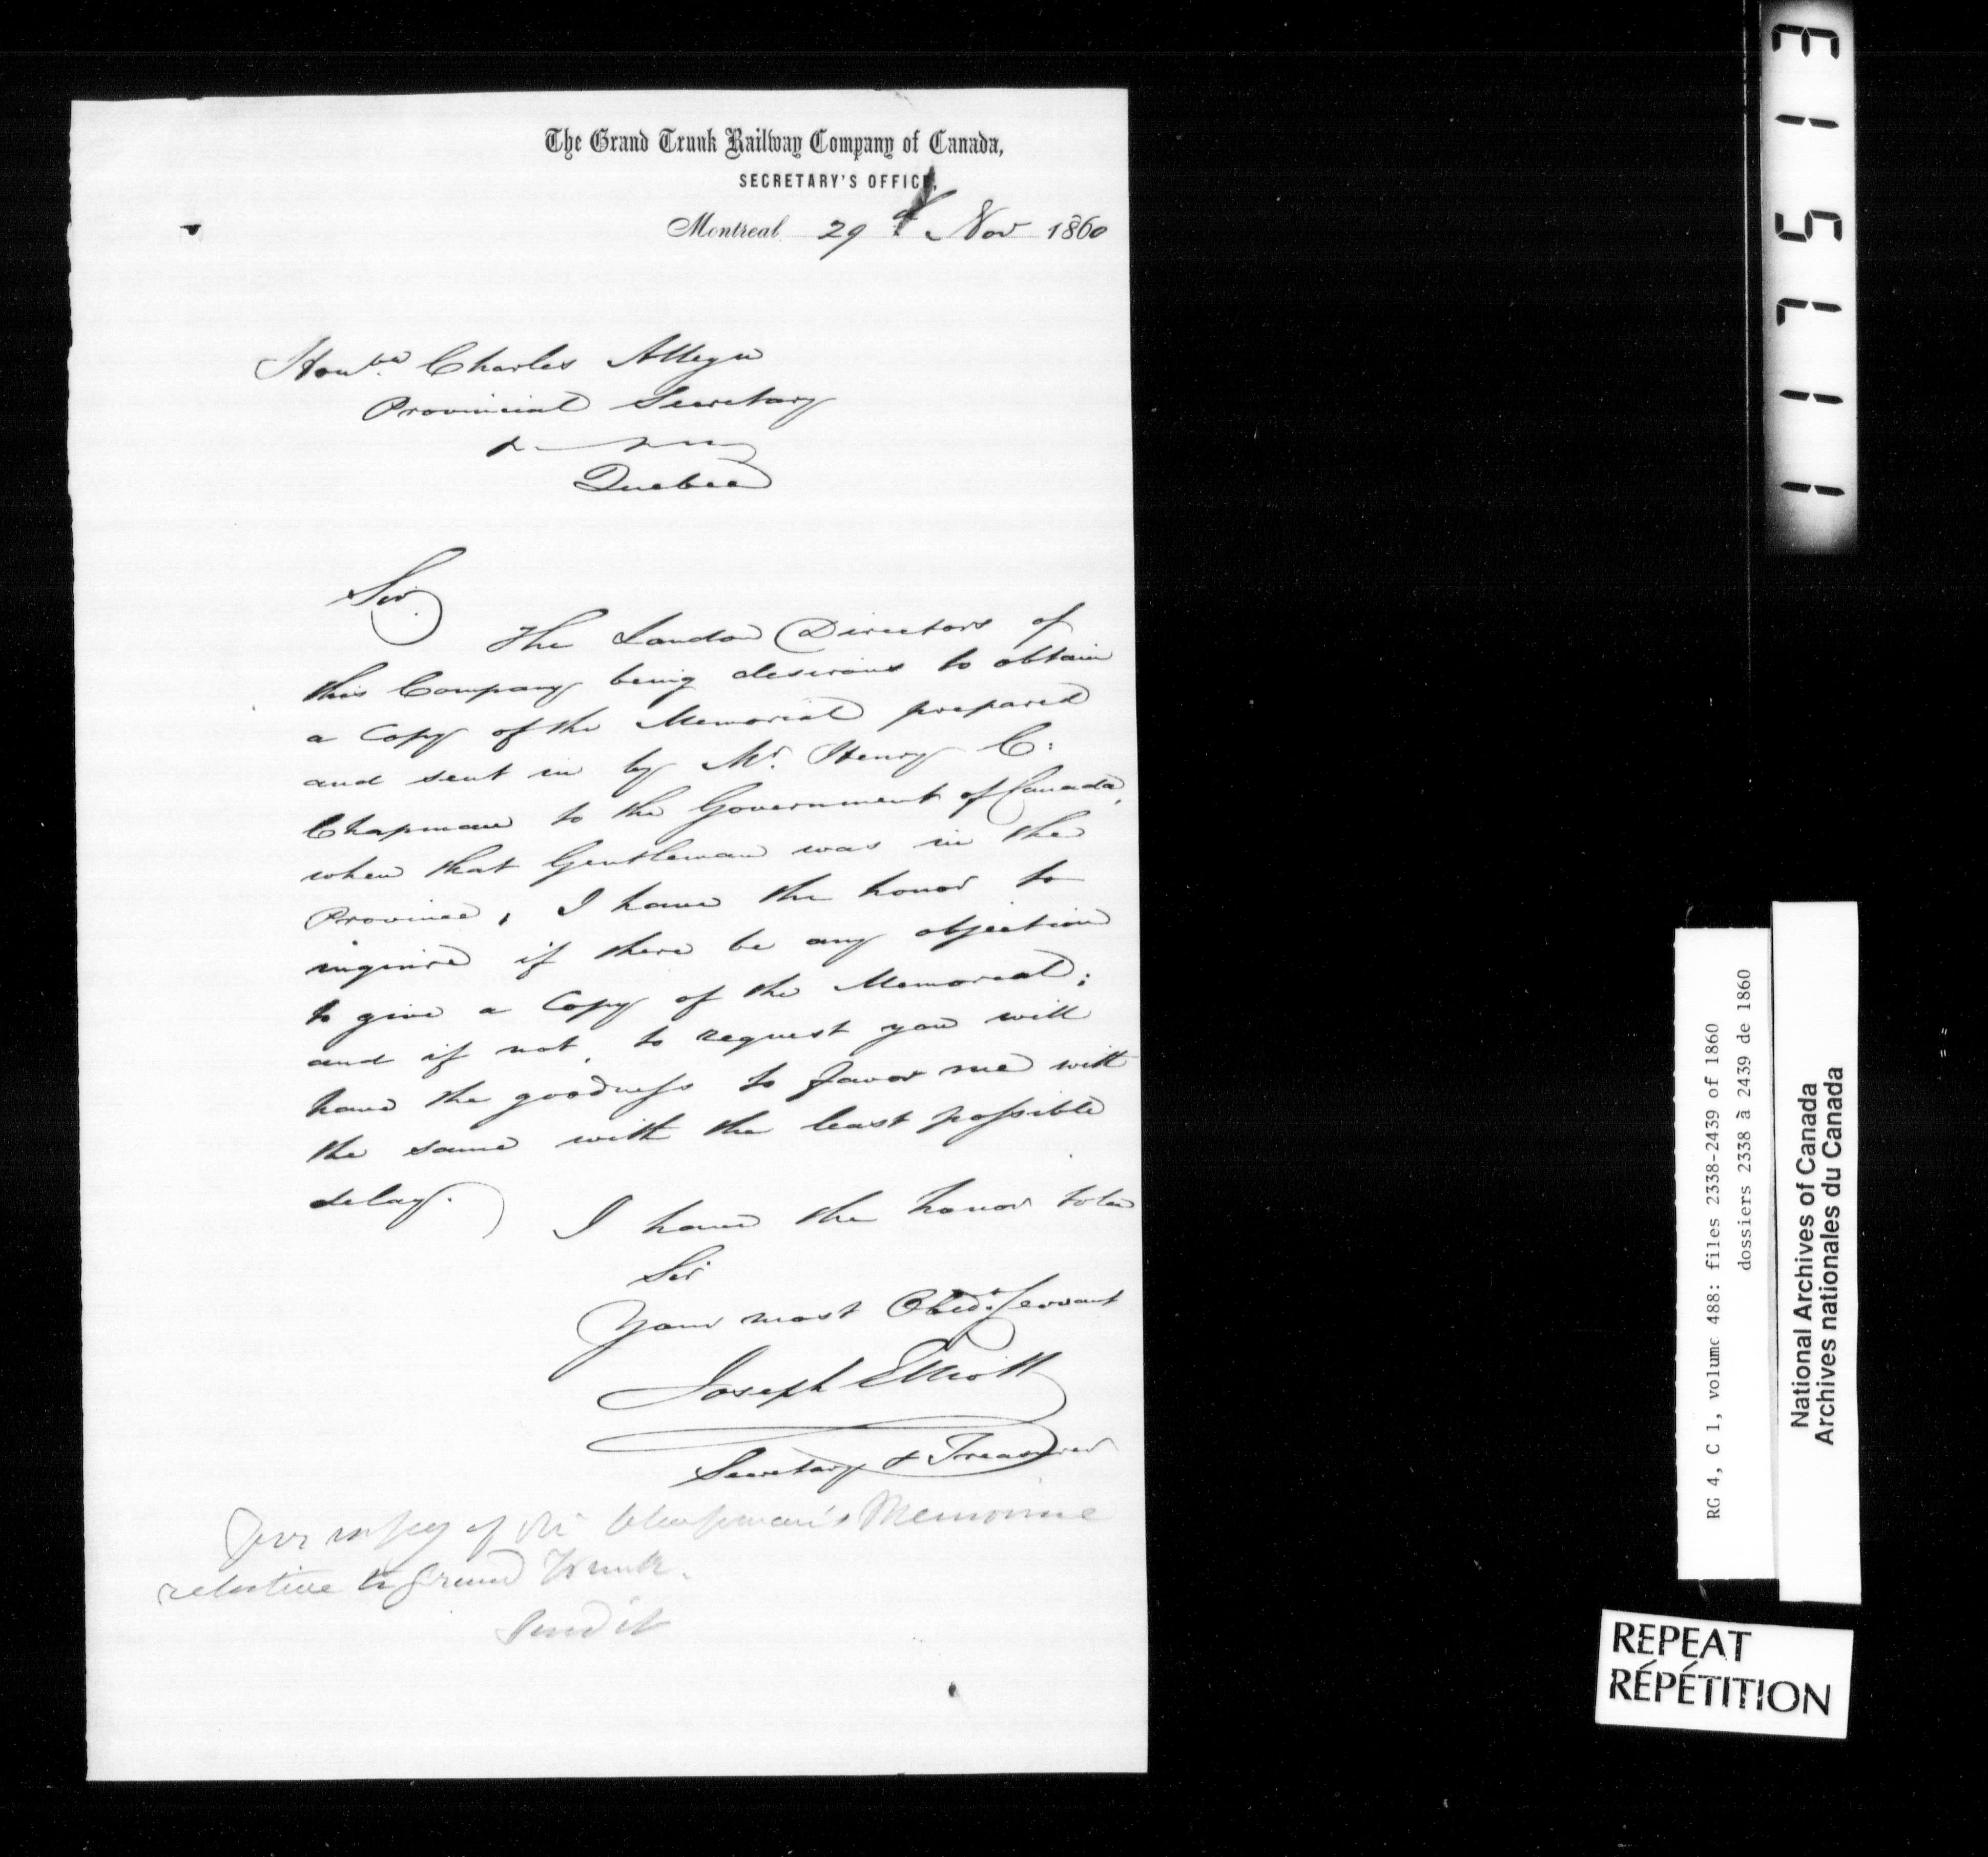 The Grand Trunk Railway Company of Canada,
SECRETARY'S OFFICE,
Montreal 29th Nov 1860
Honble Charles Alleyn
Provincial Secretary
Quebec
Sir,
The London Directors of
this Company being desirous to obtain
a Copy of the Memorial prepared
and sent in by Mr. Henry C:
Chapman to the Government of Canada,
when that Gentleman was in the
Province, I have the honor to
inquire if there be any objection
to give a Copy of the Memorial;
and if not, to request you will
have the goodness to favor me with
the same with the least possible
delay.
I have the honor to be
Sir
Your most Obedt. Servant
Joseph Elliott
Secretary & Treasurer
copy of Mr Chapman's Memoire
relative to Grand Trunk.
Send it
11715 13
RG 4, C 1, volume 488: files 2338-2439 of 1860
dossiers 2338 à 2439 de 1860
National Archives of Canada
Archives nationales du Canada
REPEAT
RÉPÉTITION